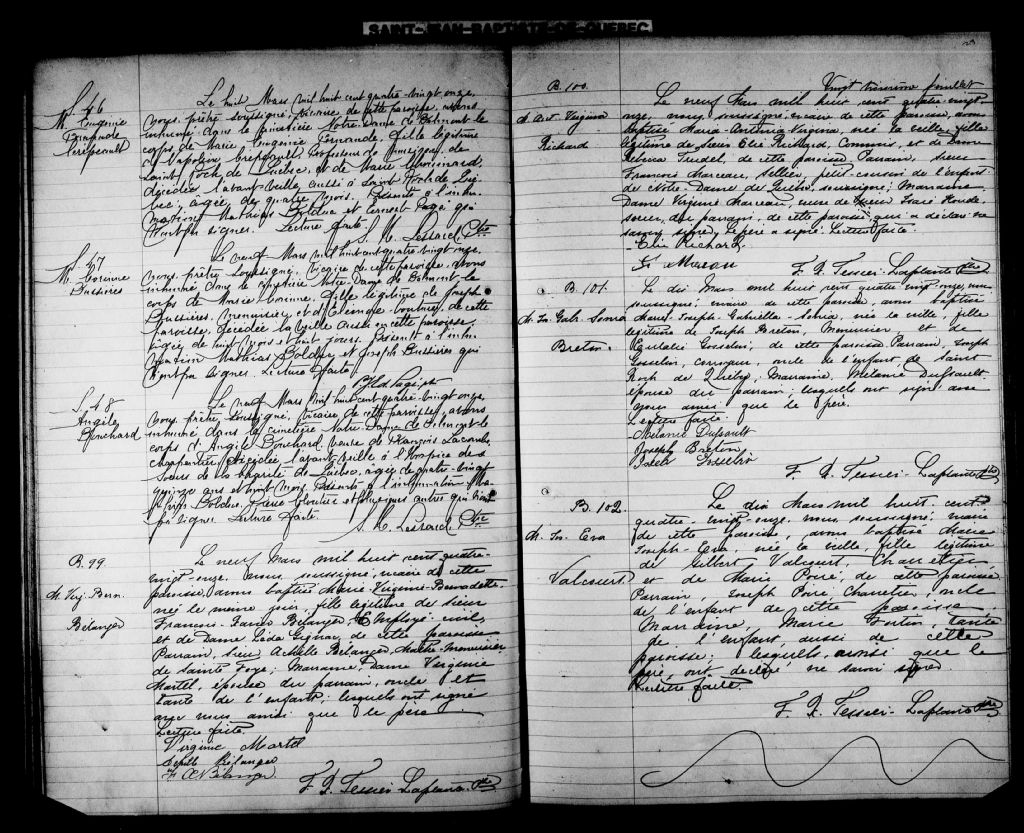 SAINT-JEAN-BAPTISTE-DE-QUEBEC
S. 46
M. Eugénie
Crépeault
Le huit Mars mil huit cent quatre-vingt-onze,
nous, prêtre soussigné, vicaire de cette paroisse, avons
inhumé dans le cimetière Notre-Dame de Belmont le
corps de Marie Eugénie fille légitime
de Napoléon Crépeault, de
Saint Roch de Québec, et de Marie
décédée l'avant-veille, aussi à Saint Roch de Qué-
bec, agée de quatre mois. Présents à l'inhu-
mation Mathias Bolduc et Ernest Pagé qui
n'ont su signer. Lecture faite.
S. 47
M. Corinne
Bussières
Le neuf Mars mil huit cent quatre-vingt-onze,
nous, prêtre soussigné, vicaire de cette paroisse, avons
inhumé dans le cimetière Notre-Dame de Belmont le
corps de Marie Corinne, fille légitime de Joseph
Bussières, menuisier et d'Eléonore de cette
paroisse, décédée la veille aussi en cette paroisse,
agée de huit mois et huit jours. Présents à l'inhu-
mation Mathias Bolduc et Joseph Bussières qui
n'ont su signer. Lecture faite.
S. 48
Angèle
Bouchard
Le neuf Mars mil huit cent quatre-vingt-onze,
nous, prêtre soussigné, vicaire de cette paroisse, avons
inhumé dans le cimetière Notre-Dame de Belmont le
corps d'Angèle Bouchard, veuve de François Lacombe,
charpentier, décédée l'avant-veille à l'Hospice des
Soeurs de la Charité de Québec, agée de quatre-vingt
quinze ans et huit mois. Présents à l'inhumation Ma-
thias Bolduc, Pierre et plusieurs autres qui n'ont
su signer. Lecture faite.
B. 99
M. Eug. Bern.
Bélanger
Le neuf Mars mil huit cent quatre-
vingt-onze, nous, soussigné, vicaire de cette
paroisse, avons baptisé Marie-Eugénie-Bernadette,
née le même jour, fille légitime de Sieur
François-Xavier Bélanger, Employé civil,
et de Dame Léda Gignac, de cette paroisse.
Parrain, Sieur Achille Bélanger, Maître-menuisier
de Sainte Foye; Marraine, Dame Virginie
Martel, épouse du parrain, oncle et
tante de l'enfant; lesquels ont signé
avec nous ainsi que le père.
Lecture faite.
Virginie Martel
Achille Bélanger
F. X. Bélanger
F. X. Tessier-Laplante Ptre
Vingt troisième feuillet
23
B. 100.
M. Ant. Virginia
Richard
Le neuf Mars mil huit cent quatre-vingt-
onze, nous, soussigné, vicaire de cette paroisse, avons
baptisé Marie-Antonia-Virginia, née la veille, fille
légitime de Sieur Elie Richard, Commis, et de Dame
Rebecca Trudel, de cette paroisse. Parrain, Sieur
François Marceau, Sellier, petit-cousin de l'enfant
de Notre-Dame de Québec, soussigné; Marraine,
Dame Virginie Marceau, veuve de Sieur Isaïe Houde,
soeur du parrain, de cette paroisse qui a déclaré ne
savoir signer. Le père a signé. Lecture faite.
Elie Richard
F. X. Tessier-Laplante Ptre
B. 101.
M. Jos. Gabr. Sonia
Breton.
Le dix Mars mil huit cent quatre vingt-onze, nous
soussigné, vicaire de cette paroisse, avons baptisé
Marie-Joseph-Gabriella-Sonia, née la veille, fille
légitime de Joseph Breton, Menuisier, et de
Eulalie Gosselin, de cette paroisse. Parrain, Joseph
Gosselin, corroyeur, oncle de l'enfant de Saint
Roch de Québec; Marraine, Mélanie Dussault,
épouse du parrain, lesquels ont signé avec
nous ainsi que le père.
Lecture faite.
Mélanie Dussault
Joseph Breton
Joseph Gosselin
F. X. Tessier-Laplante Ptre
B. 102.
M. Jos. Eva
Valcourt
Le dix Mars mil huit cent
quatre-vingt-onze, nous, soussigné, vicaire
de cette paroisse, avons baptisé Marie
Joseph-Eva, née la veille, fille légitime
de Gilbert Valcourt, Charretier,
et de Marie Poiré, de cette paroisse.
Parrain, Joseph Poiré, Charretier, oncle
de l'enfant de cette paroisse,
Marraine, Marie Fortin, tante
de l'enfant aussi de cette
paroisse; lesquels, ainsi que le
père, ont déclaré ne savoir signer
Lecture faite.
F. X. Tessier-Laplante Ptre